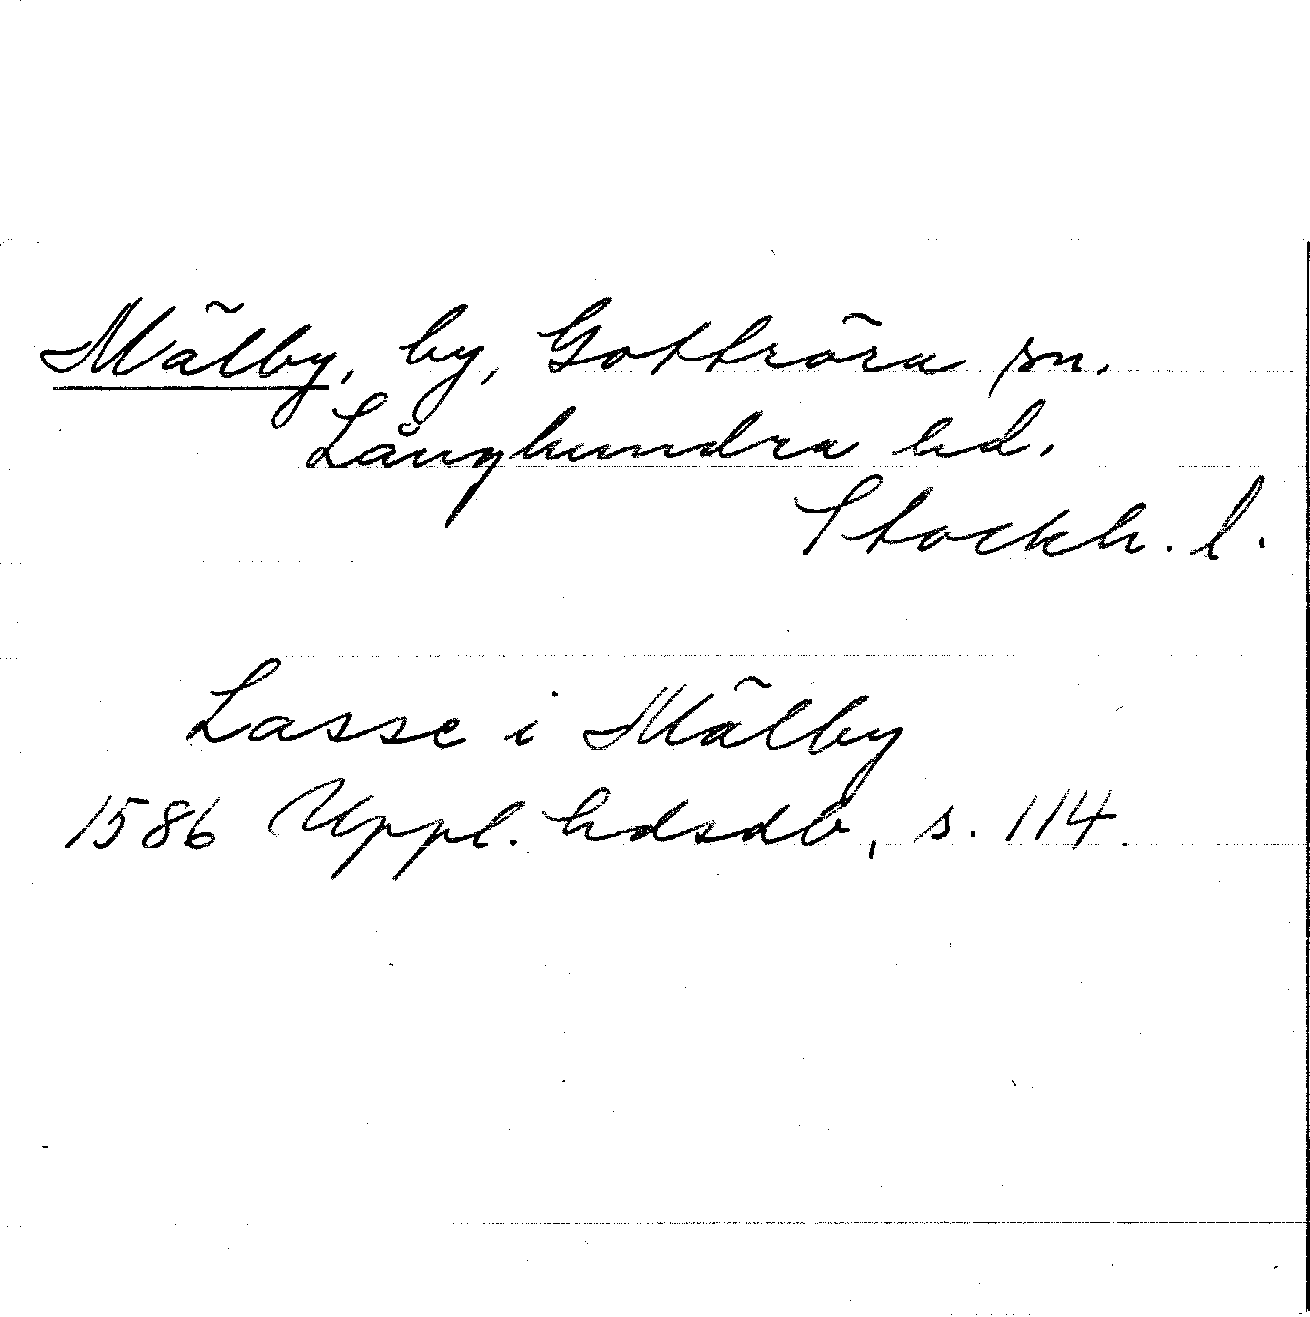 Mälby, by, Gottröra sn.
Långhundra hd.
Stockh. l.
Lasse i Mälby
1586 Uppl. hdsdb, s. 114